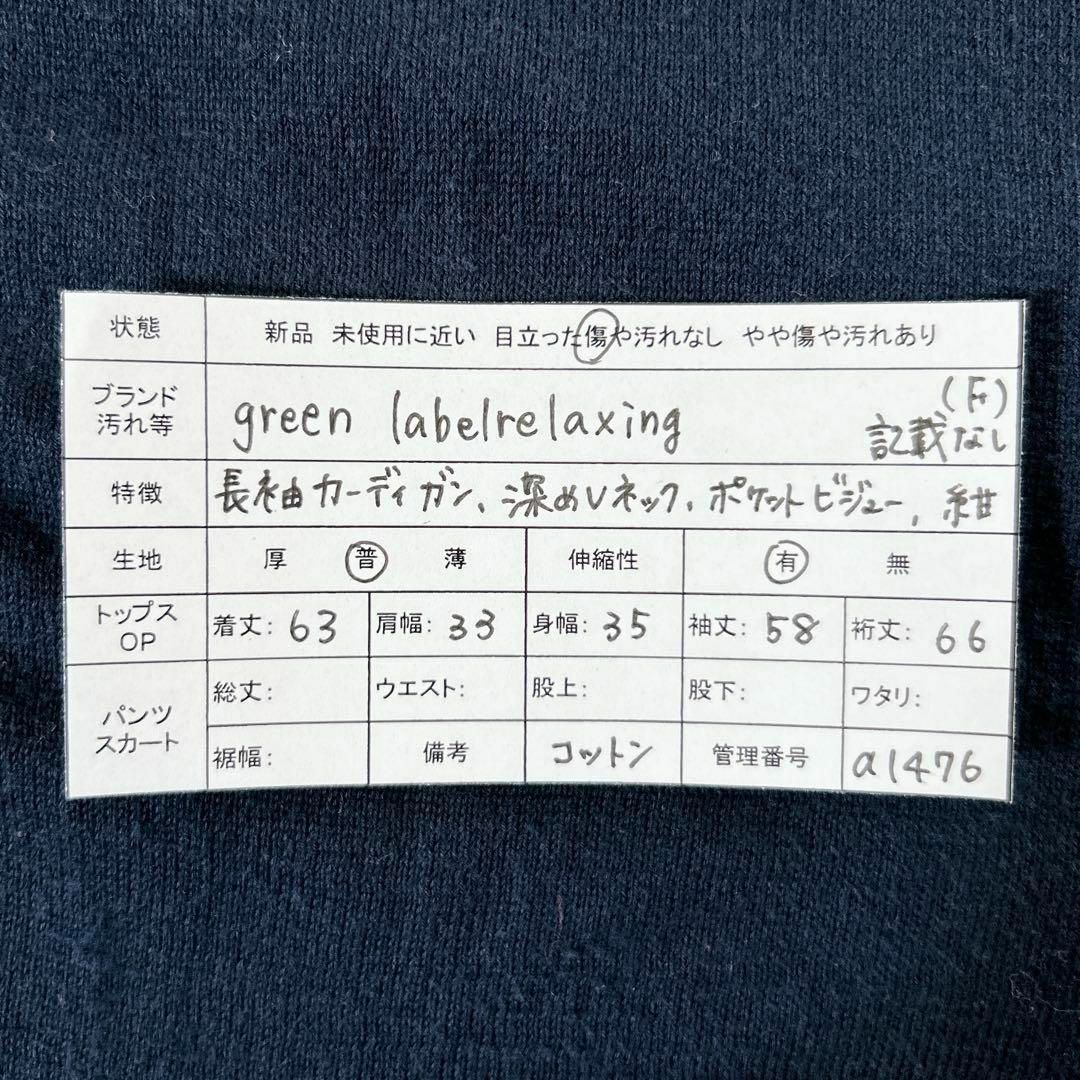 状態 新品 未使用に近い 目立った傷や汚れなし やや傷や汚れあり
ブランド
汚れ等 green labelrelaxing (F)
記載なし
特徴 長袖カーディガン、深めVネック、ポケットビジュー、紺
生地 厚 普 薄 伸縮性 有 無
トップス
OP 着丈: 63 肩幅: 33 身幅: 35 袖丈: 58 裄丈: 66
パンツ
スカート 総丈: ウエスト: 股上: 股下: ワタリ:
裾幅: 備考 コットン 管理番号 a1476